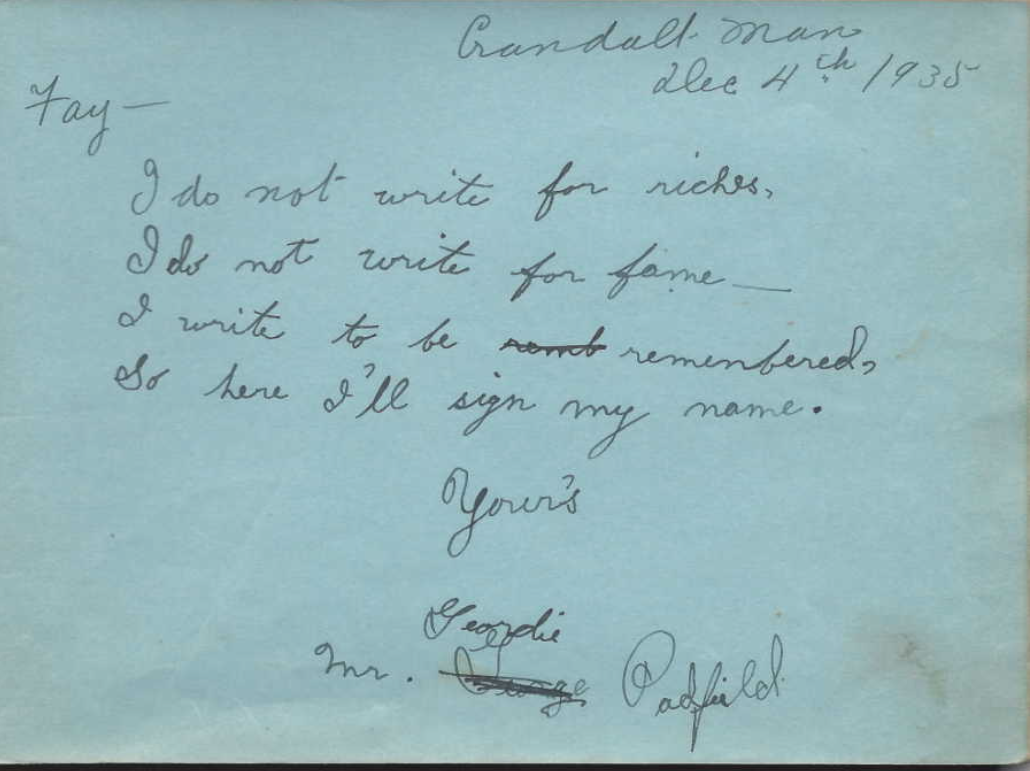 Crandall Man
Dec 4th 1935
Fay —
I do not write for riches,
I do not write for fame —
I write to be remb remembered,
So here I'll sign my name.
Your's
Geordie
Mr. George Padfield